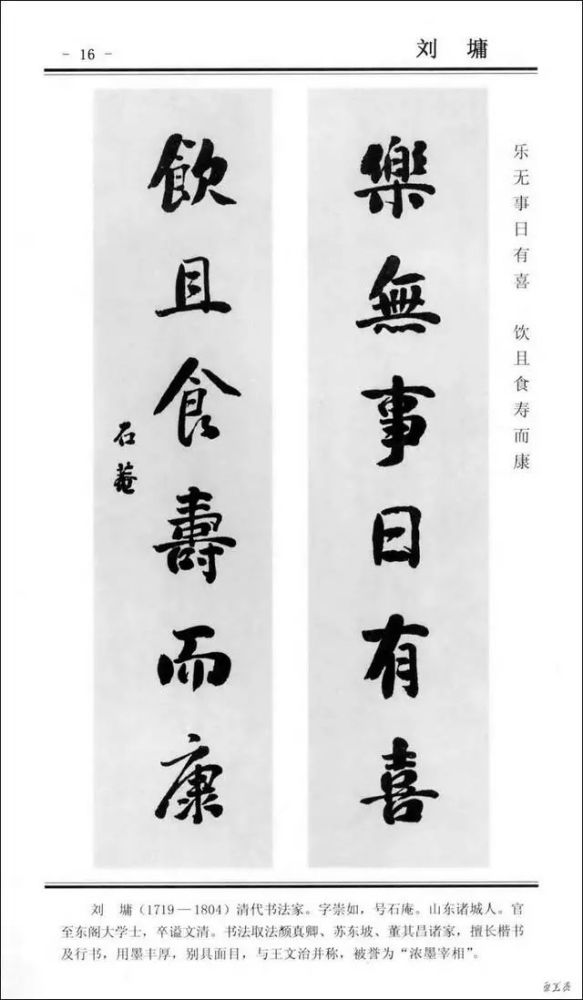 - 16 -
刘 墉
樂無事日有喜
飲且食壽而康
石菴
乐无事日有喜 饮且食寿而康
刘 墉（1719—1804）清代书法家。字崇如，号石庵。山东诸城人。官
至东阁大学士，卒谥文清。书法取法颜真卿、苏东坡、董其昌诸家，擅长楷书
及行书，用墨丰厚，别具面目，与王文治并称，被誉为“浓墨宰相”。